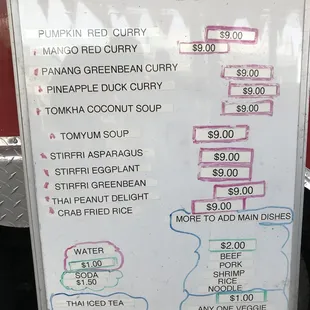 PUMPKIN RED CURRY $9.00
MANGO RED CURRY $9.00
PANANG GREENBEAN CURRY $9.00
PINEAPPLE DUCK CURRY $9.00
TOMKHA COCONUT SOUP $9.00
TOMYUM SOUP $9.00
STIRFRI ASPARAGUS $9.00
STIRFRI EGGPLANT $9.00
STIRFRI GREENBEAN $9.00
THAI PEANUT DELIGHT $9.00
CRAB FRIED RICE
MORE TO ADD MAIN DISHES
$2.00
BEEF
PORK
SHRIMP
RICE
NOODLE
$1.00
ANY ONE VEGGIE
WATER
$1.00
SODA
$1.50
THAI ICED TEA